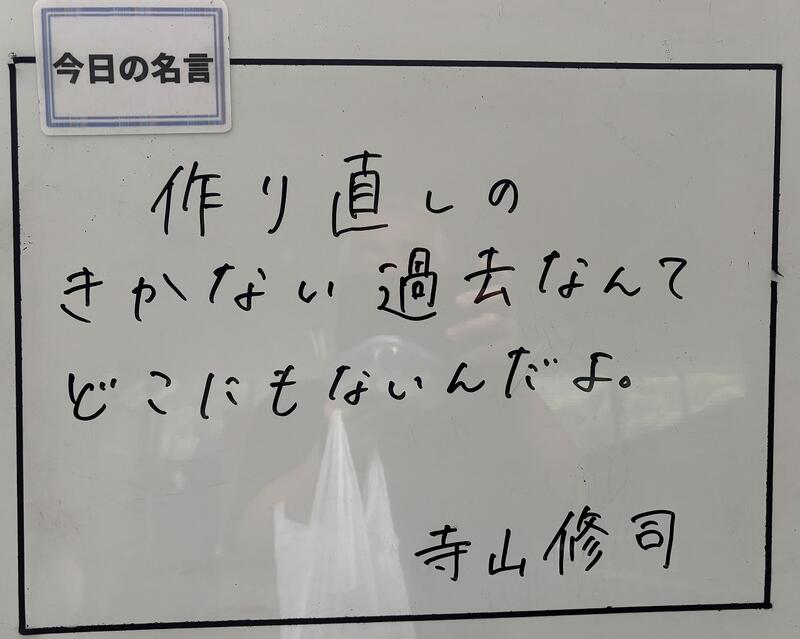 今日の名言
作り直しの
きかない過去なんて
どこにもないんだよ。
寺山修司